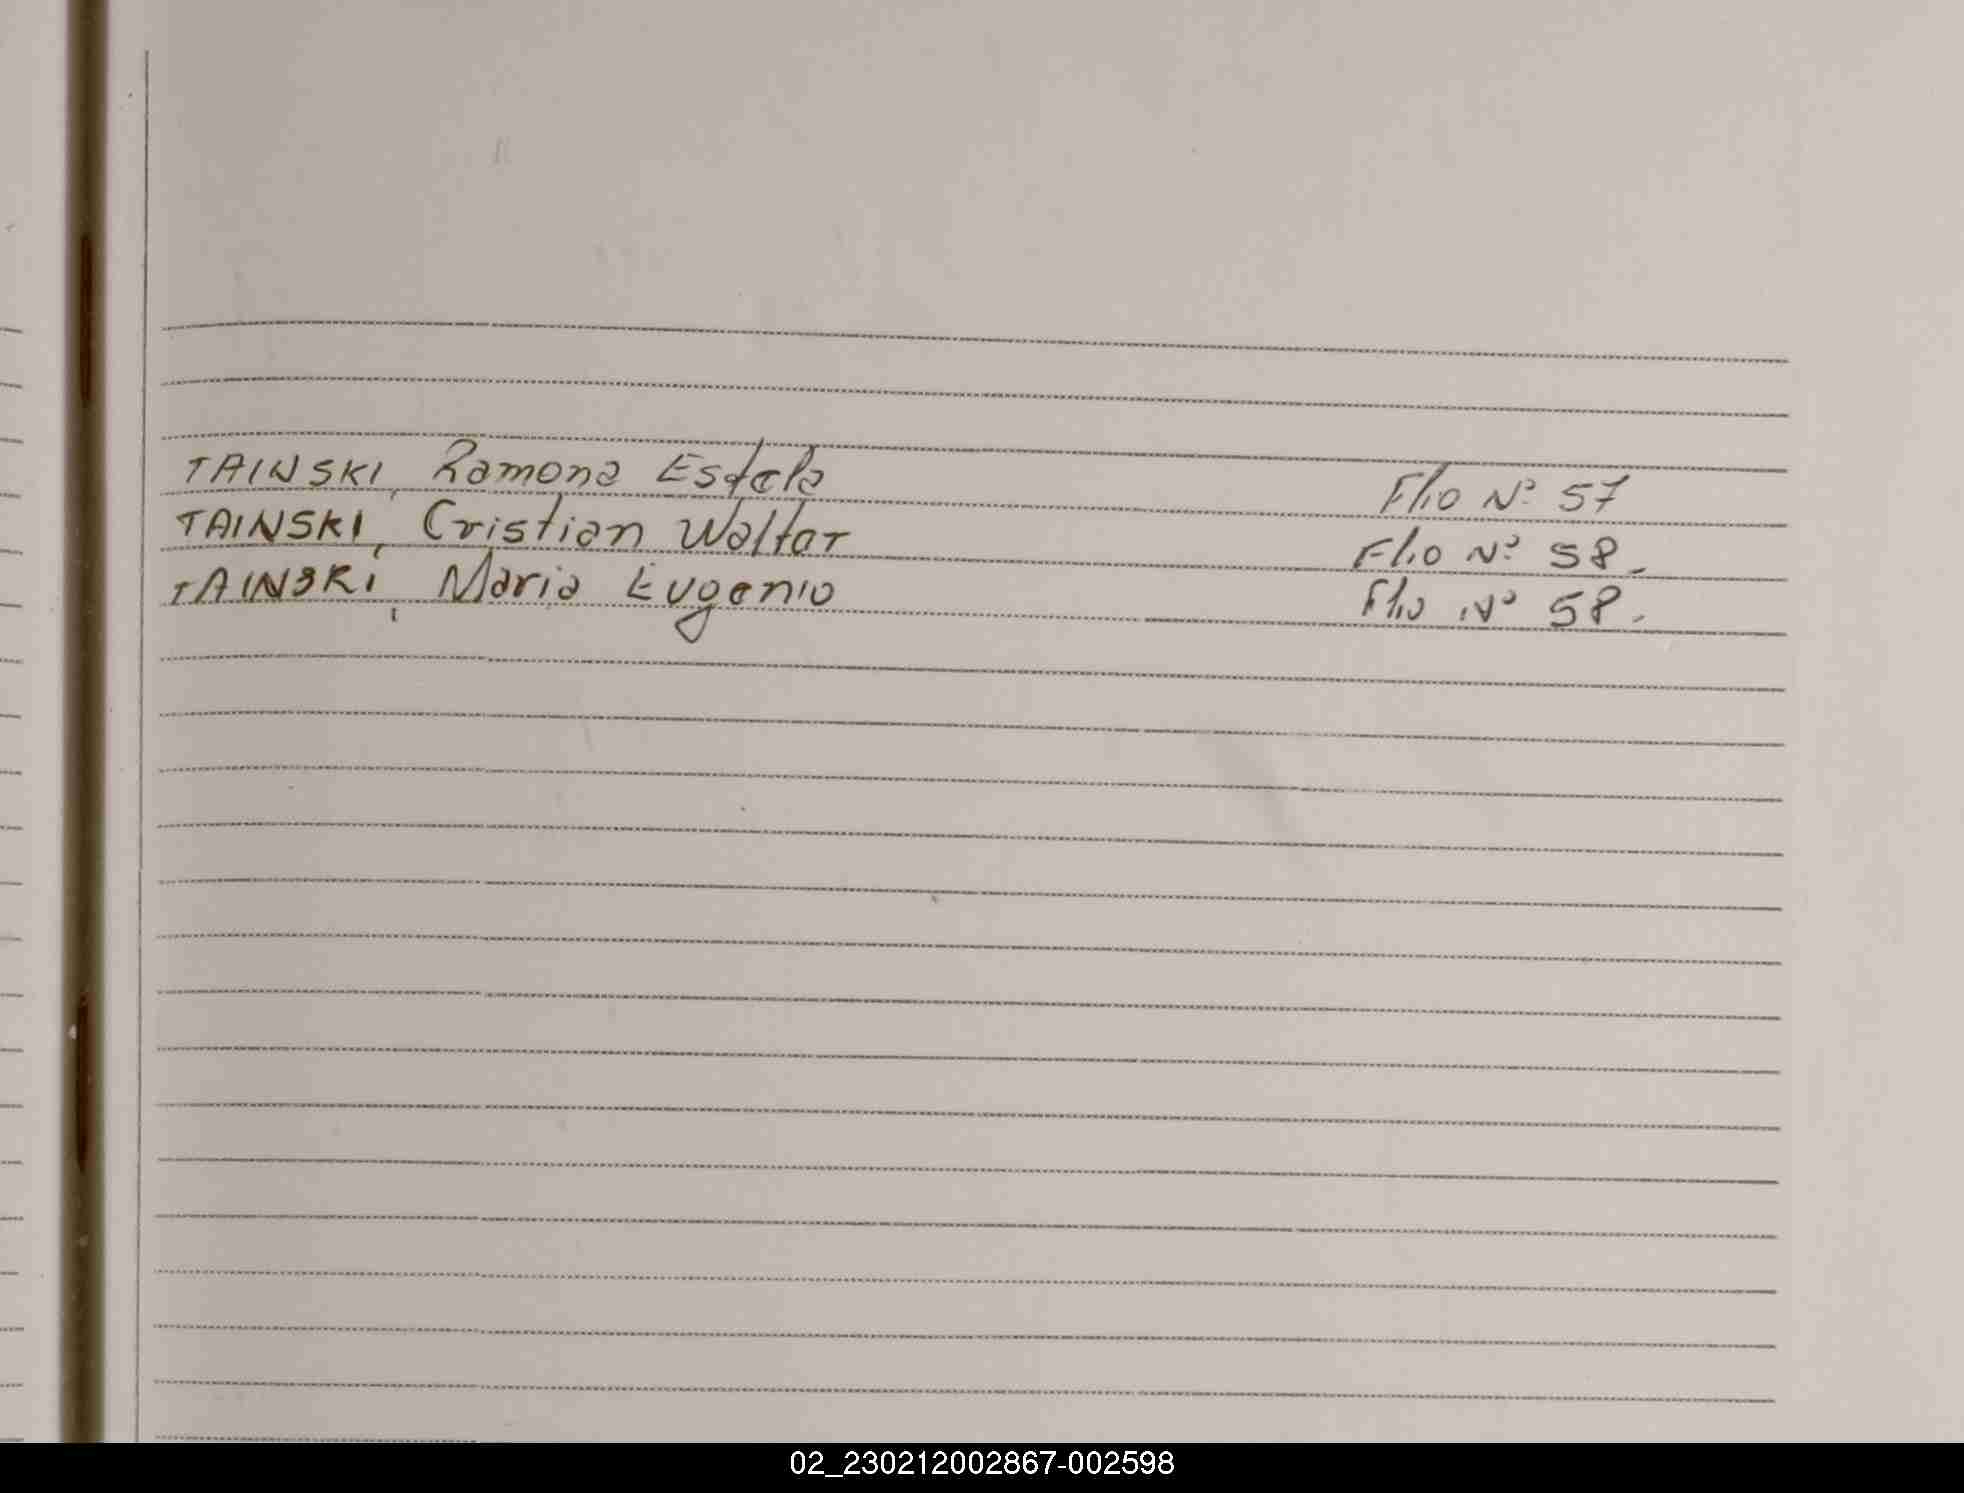 TAINSKI, Ramona Estela Flio Nº 57
TAINSKI, Cristian Walter Flio Nº 58.
TAINSKI, Maria Eugenio Flio Nº 58.
02_230212002867-002598